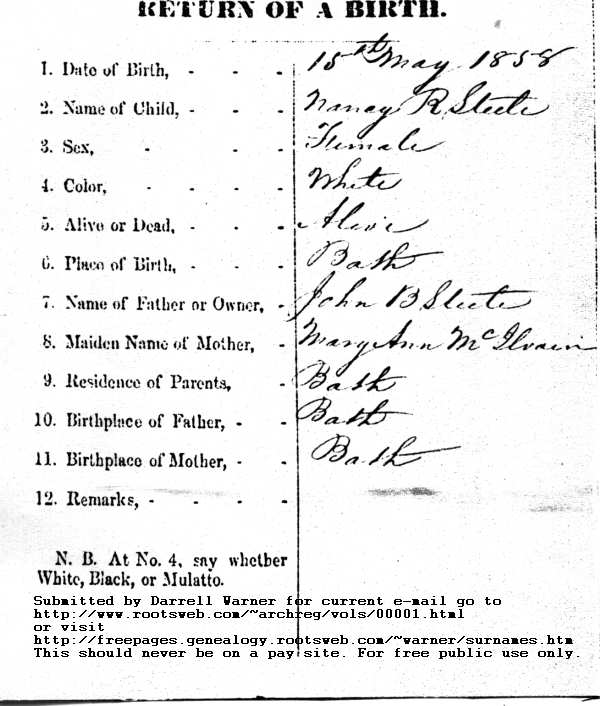 RETURN OF A BIRTH.
1. Date of Birth, - - - 15th May 1858
2. Name of Child, - - - Nancy R Steele
3. Sex, - - - Female
4. Color, - - - - White
5. Alive or Dead, - - - Alive
6. Place of Birth, - - - Bath
7. Name of Father or Owner, - John B Steele
8. Maiden Name of Mother, - Mary Ann McIlvain
9. Residence of Parents, - Bath
10. Birthplace of Father, - - Bath
11. Birthplace of Mother, - - Bath
12. Remarks, - - - -
N. B. At No. 4, say whether
White, Black, or Mulatto.
Submitted by Darrell Warner for current e-mail go to
http://www.rootsweb.com/~archreg/vols/00001.html
or visit
http://freepages.genealogy.rootsweb.com/~warner/surnames.htm
This should never be on a pay site. For free public use only.